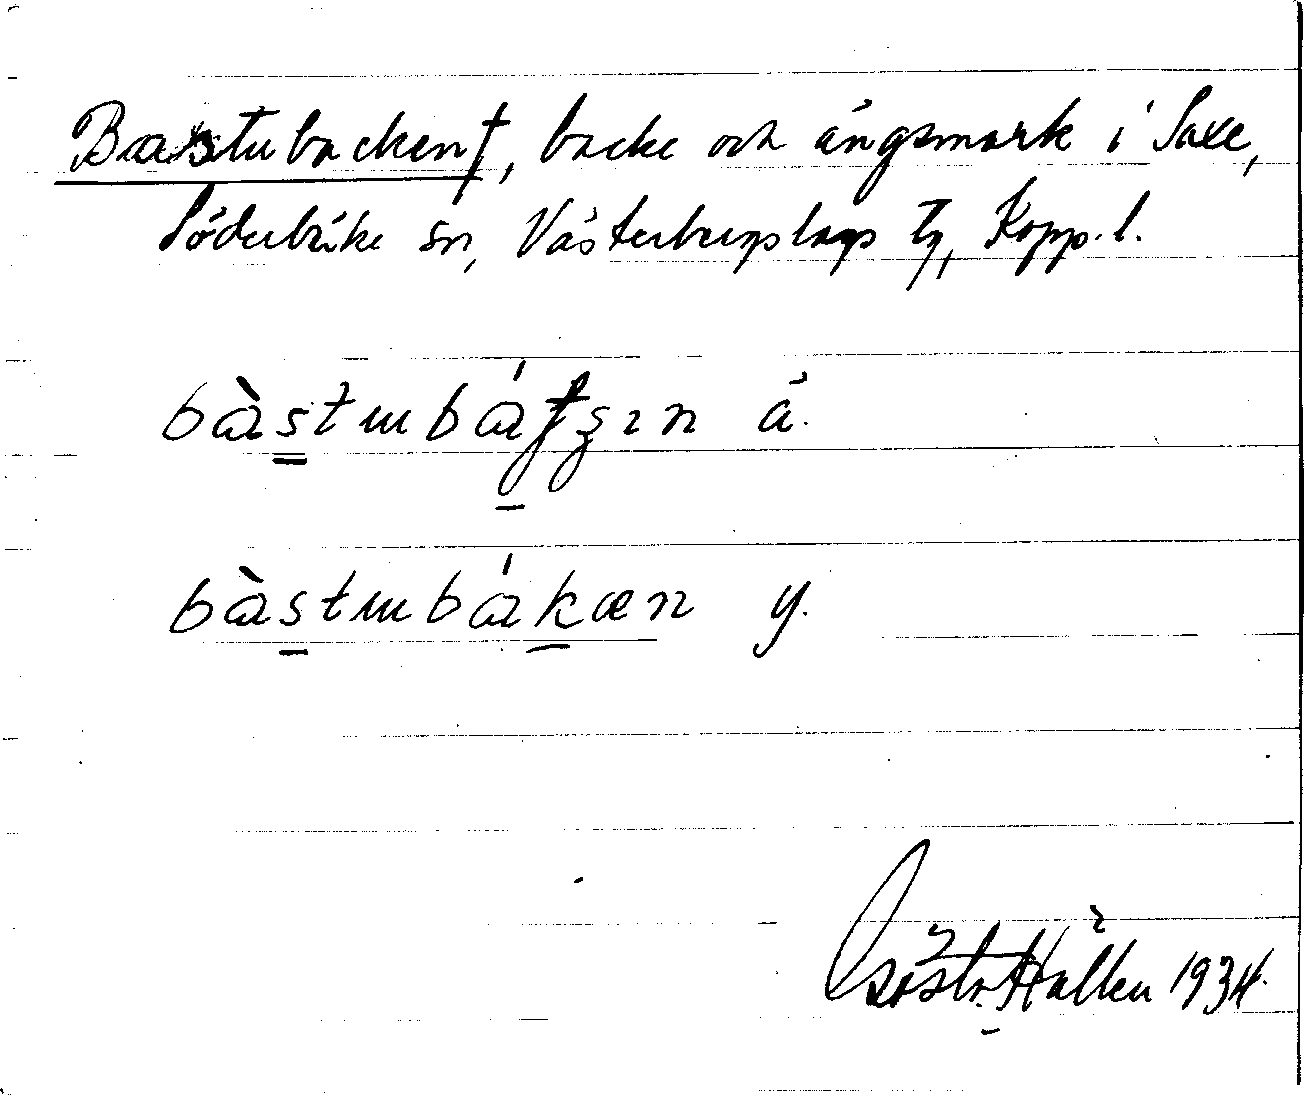 Bastubacken†, backe och ängsmark i Saxe,
Söderbärke sn, Västerbergslags tg, Kopp. l.
bàstɯbátʂɪn ä.
bàstɯbákæn y.
Gösta Hållen 1934.